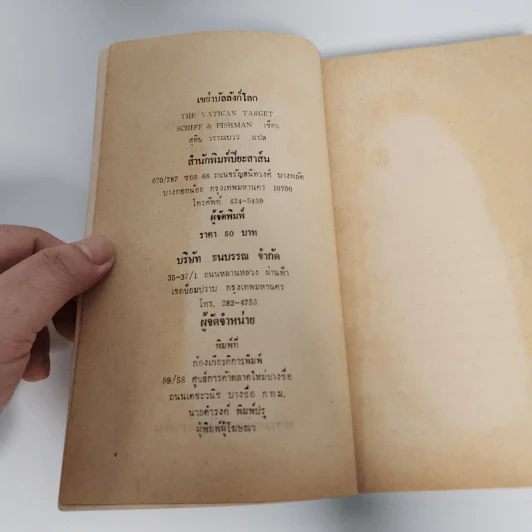 เขย่าบัลลังก์โลก
THE VATICAN TARGET
SCHIFF & FISHMAN เขียน
สุทิน วรรณบวร แปล
สำนักพิมพ์ปิยะสาส์น
670/787 ซอย 68 ถนนจรัญสนิทวงศ์ บางพลัด
บางกอกน้อย กรุงเทพมหานคร 10700
โทรศัพท์ 424-5459
ผู้จัดพิมพ์
ราคา 50 บาท
บริษัท ธนบรรณ จำกัด
35-37/1 ถนนหลานหลวง ผ่านฟ้า
เขตป้อมปราบ กรุงเทพมหานคร
โทร. 282-4753
ผู้จัดจำหน่าย
พิมพ์ที่
ก้องเกียรติการพิมพ์
89/58 ศูนย์การค้าตลาดใหม่บางซื่อ
ถนนเตชะวนิช บางซื่อ กทม.
นายดำรงค์ พิมพ์ปรุ
ผู้พิมพ์ผู้โฆษณา